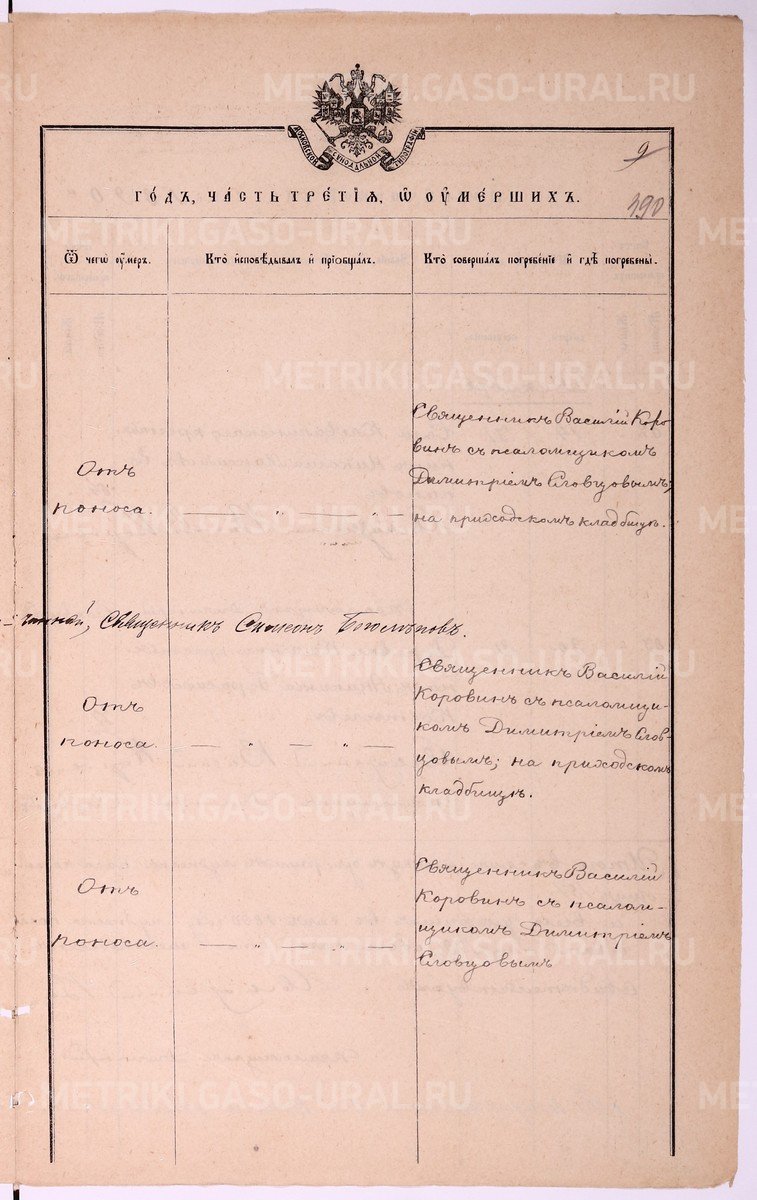 METRIKI.GASO-URAL.RU
МОСКОВСКОЙ СѴНОДАЛЬНОЙ ТИПОГРАФІИ
9
190
ГО́ДЪ, ЧА́СТЬ ТРЕ́ТІѦ, Ѡ҆ ОУ҆МЕ́РШИХЪ.
Ѿ чегѡ̀ оу҆́меръ.
Кто̀ и҆сповѣ́дывалъ и҆ прїѡбща́лъ.
Кто̀ соверша́лъ погребе́нїе и҆ гдѣ̀ погребены̀.
Отъ
поноса.
Священникъ Василій Коро-
винъ съ псаломщикомъ
Димитріемъ Словцовымъ;
на приходскомъ кладбищѣ.
Священникъ Симеонъ Богомѣловъ.
Отъ
поноса.
Священникъ Василій
Коровинъ съ псаломщи-
комъ Димитріемъ Слов-
цовымъ; на приходскомъ
кладбищѣ.
Отъ
поноса.
Священникъ Василій
Коровинъ съ псалом-
щикомъ Димитріемъ
Словцовымъ